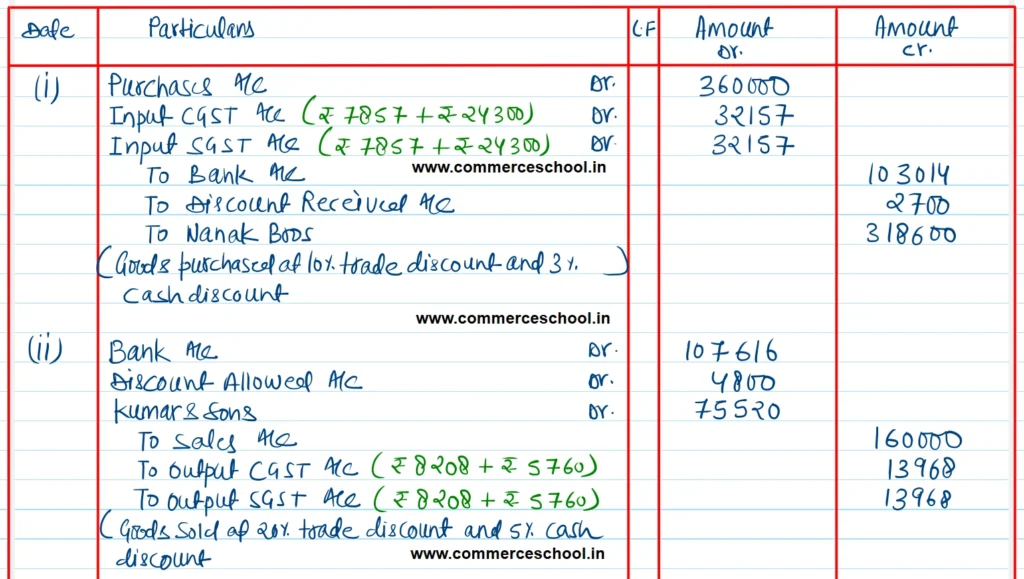 Date Particulars L.F Amount Dr. Amount cr.
(i) Purchases A/c Dr. 360000
Input CGST A/c (₹ 7857 + ₹ 24300) Dr. 32157
Input SGST A/c (₹ 7857 + ₹ 24300) Dr. 32157
www.commerceschool.in
To Bank A/c 103014
To Discount Received A/c 2700
To Nanak Bros 318600
(Goods purchased at 10% trade discount and 3%
cash discount)
www.commerceschool.in
(ii) Bank A/c Dr. 107616
Discount Allowed A/c Dr. 4800
Kumar & Sons Dr. 75520
To Sales A/c 160000
To Output CGST A/c (₹ 8208 + ₹ 5760) 13968
To Output SGST A/c (₹ 8208 + ₹ 5760) 13968
(Goods sold at 20% trade discount and 5% cash
discount
www.commerceschool.in